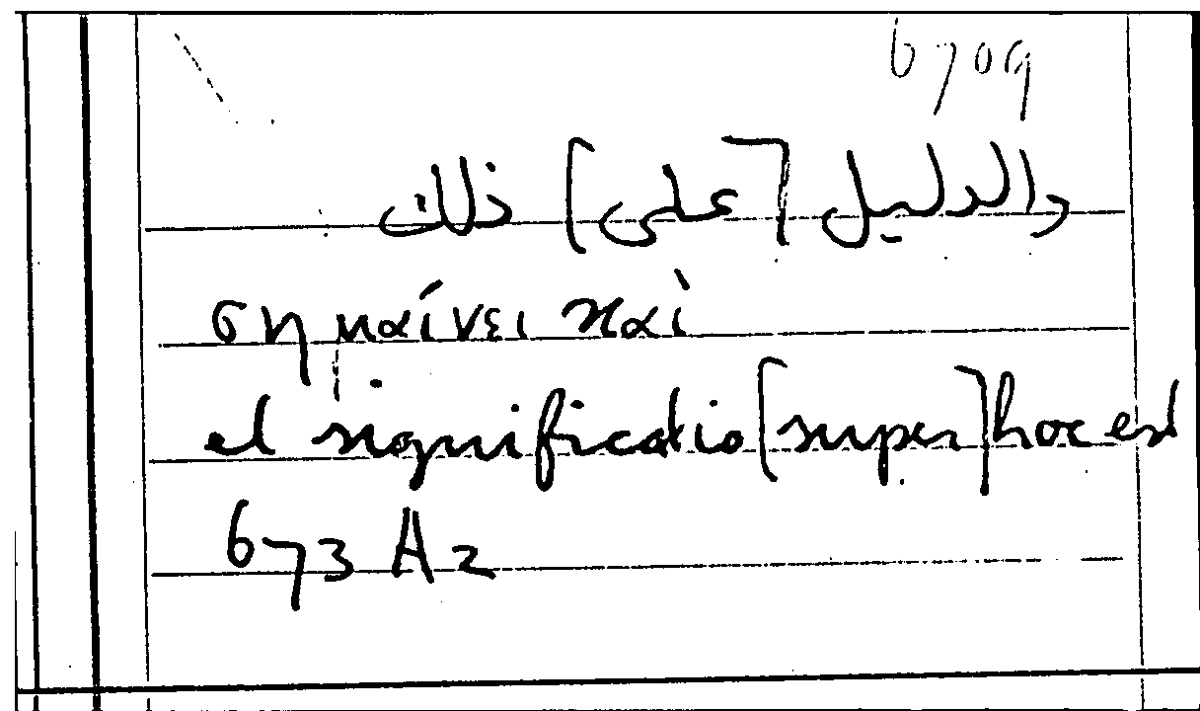 6709
والدليل [على] ذلك
σημαίνει καὶ
et significatio [super] hoc est
673 A2